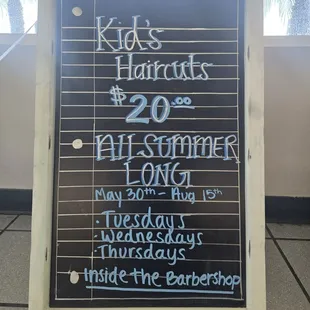 Kid's
Haircuts
$20.00
All Summer
Long
May 30th - Aug 15th
· Tuesdays
· Wednesdays
· Thursdays
Inside the Barbershop